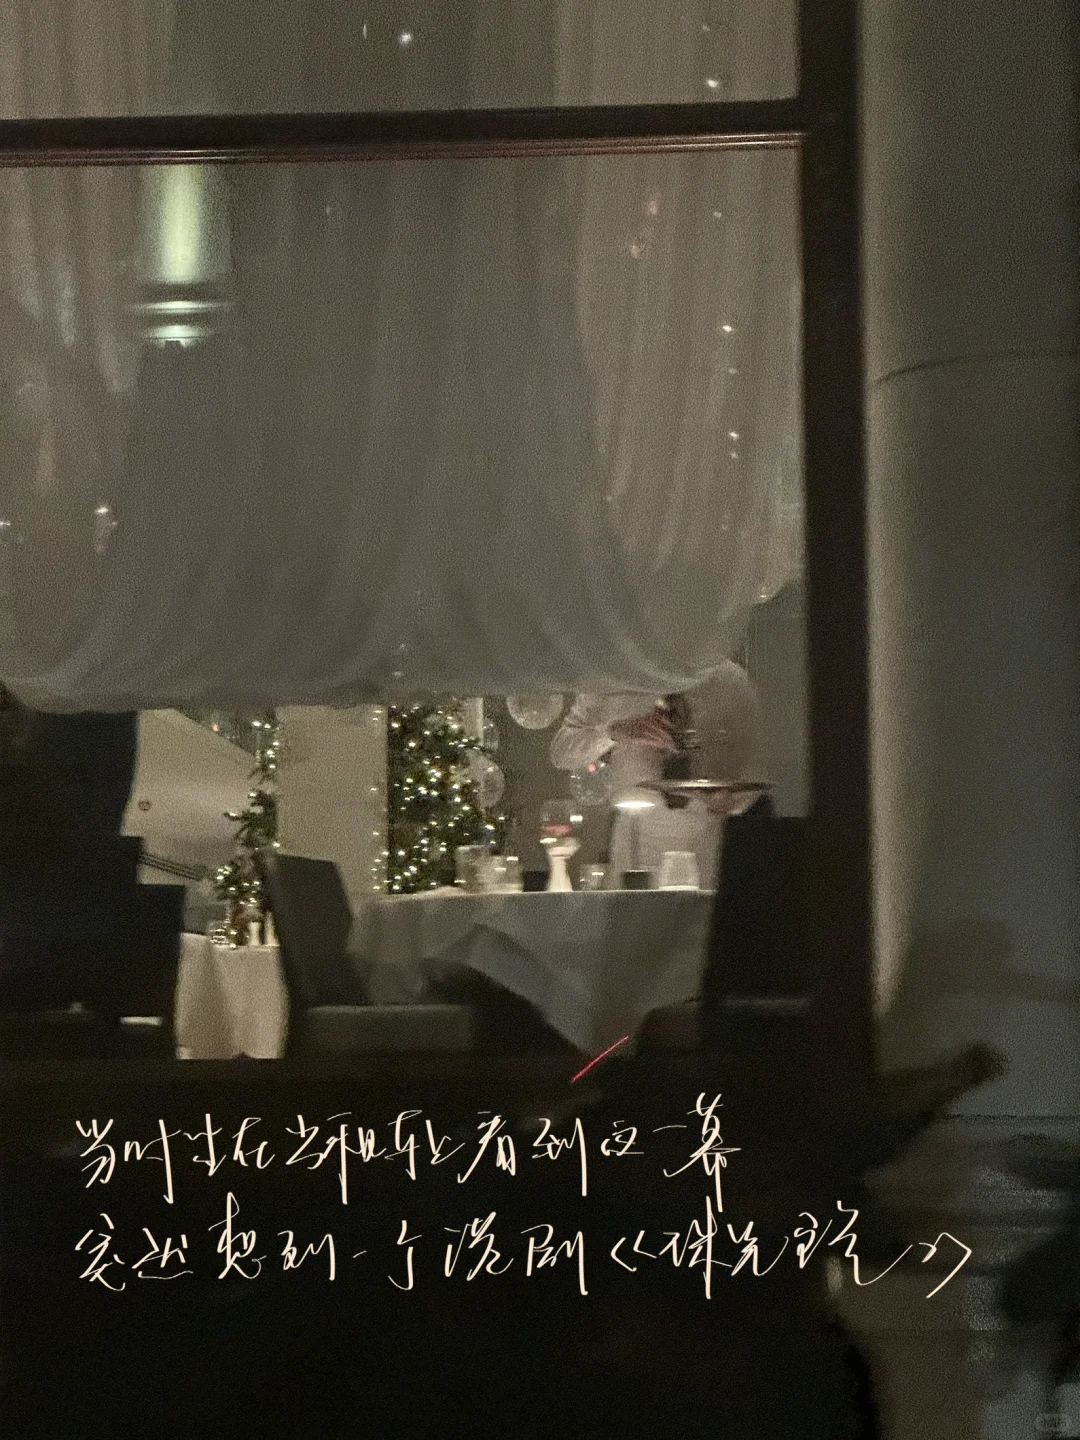 当时坐在出租车上看到这一幕
突然想到一个港剧《珠光宝气》